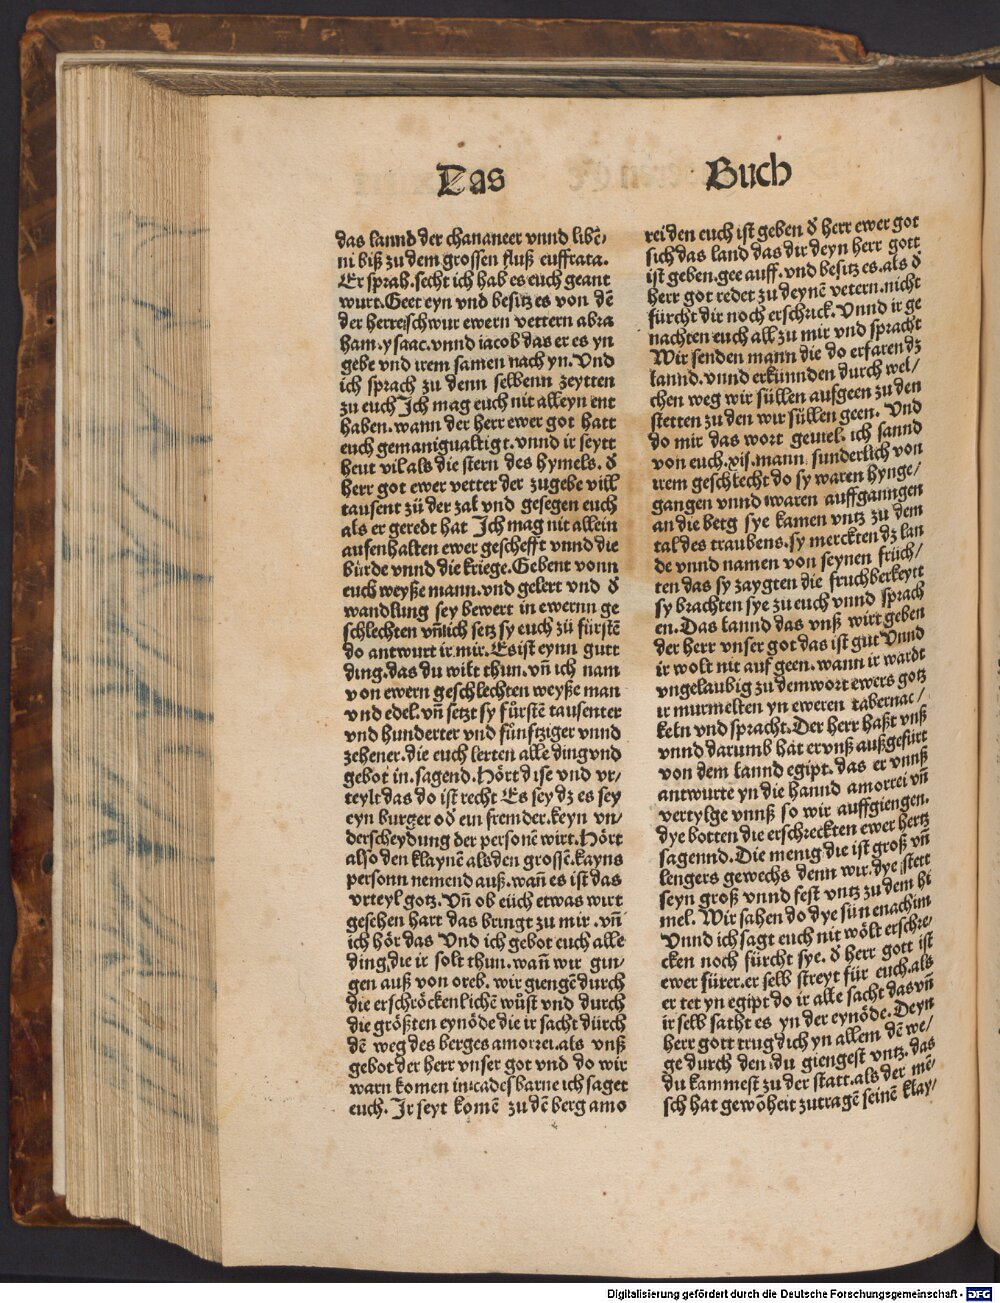 Das Buch
das lannd der chananeer vnnd libẽ/
ni biß zu dem grossen fluß euffrata.
Er sprah. secht ich hab es euch geant
wurt. Geet eyn vnd besitz es von dẽ
der herre schwur ewern vettern abra
ham. ysaac. vnnd iacob das er es yn
gebe vnd irem samen nach yn. Vnd
ich sprach zu denn selbenn zeytten
zu euch Ich mag euch nit alleyn ent
haben. wann der herr ewer got hatt
euch gemanigualtigt. vnnd ir seytt
heut vil als die stern des hymels. d̄
herr got ewer vetter der zugebe vill
tausent zü der zal vnd gesegen euch
als er geredt hat Ich mag nit allein
aufenhalten ewer geschefft vnnd die
bürde vnnd die kriege. Gebent vonn
euch weyße mann. vnd gelert vnd d̄
wandlung sey bewert in ewernn ge
schlechten vñ ich setz sy euch zü fürstẽ
do antwurt ir mir. Es ist eynn gutt
ding. das du wilt thun. vñ ich nam
von ewern geschlechten weyße man
vnd edel. vñ setzt sy fürstẽ tausenter
vnd hunderter vnd fünfftziger vnnd
zehener. die euch lerten alle ding vnd
gebot in. sagend. Hört dise vnd vr/
teylt das do ist recht Es sey dz es sey
eyn burger od̄ ein fremder. keyn vn/
derscheydung der personẽ wirt. Hört
also den klaynẽ als den grossẽ. kayns
personn nemend auß. wañ es ist das
vrteyl gotz. Vñ ob eüch etwas wirt
gesehen hart das bringt zu mir. vñ
ich hör das Vnd ich gebot euch alle
ding die ir solt thun. wañ wir gin/
gen auß von oreb. wir giengẽ durch
die erschröckenlichẽ wüst vnd durch
die größten eynöde die ir sacht dürch
dẽ weg des berges amorrei. als vnß
gebot der herr vnser got vnd do wir
warn komen in cades barne ich saget
euch. Ir seyt komẽ zu dẽ berg amo
rei den euch ist geben d̄ herr ewer got
sich das land das dir deyn herr gott
ist geben. gee auff. vnd besitz es. als d̄
herr got redet zu deynẽ vetern. nicht
fürcht dir noch erschrick. Vnnd ir ge
nachten euch all zu mir vnd spracht
Wir senden mann die do erfaren dz
lannd. vnnd erkünnden durch wel/
chen weg wir süllen aufgeen zu den
stetten zu den wir süllen geen. Vnd
do mir das wort geuiel. ich sannd
von euch. xij. mann sunderlich von
irem geschlecht do sy waren hynge/
gangen vnnd waren auffganngen
an die berg sye kamen vntz zu dem
tal des traubens. sy merckten dz lan
de vnnd namen von seynen früch/
ten das sy zaygten die fruchberkeytt
sy brachten sye zu euch vnnd sprach
en. Das lannd das vnß wirt geben
der herr vnser got das ist gut Vnnd
ir wolt nit auf geen. wann ir wardt
vngelaubig zu dem wort ewers gotz
ir murmelten yn eweren tabernac/
keln vnd spracht. Der herr haßt vnß
vnnd darumb hat er vnß außgefürt
von dem lannd egipt. das er vnnß
antwurte yn die hannd amorrei vñ
vertylge vnnß so wir auffgiengen.
dye botten die erschreckten ewer hertz
sagennd. Die menig die ist groß vñ
lengers gewechs denn wir. dye stett
seyn groß vnnd fest vntz zu dem hi
mel. Wir sahen do dye sün enachim
Vnnd ich sagt euch nit wölt erschre/
cken noch fürcht sye. d̄ herr gott ist
ewer fürer. er selb streyt für euch. als
er tet yn egipt do ir alle sacht das vñ
ir selb saht es yn der eynöde. Deyn
herr gott trug dich yn allem dẽ we/
ge durch den du giengest vntz. das
du kammest zu der statt. als der mẽ/
sch hat gewõheit zutragẽ seinẽ klay/
Digitalisierung gefördert durch die Deutsche Forschungsgemeinschaft - DFG